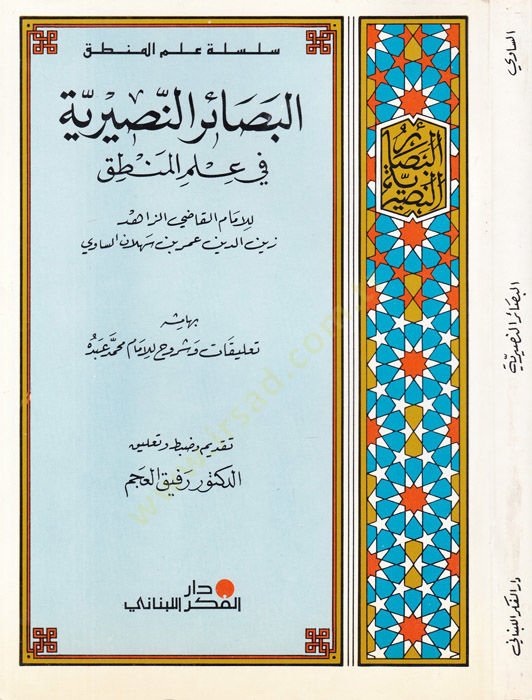 سلسلة علم المنطق
البَصَائر النّصيريّة
في عِلم المَنطِق
للإمام القاضي الزاهد
زين الدين عمر بن سهلان الساوي
بهامشه
تعليقات وشروح للإمام محمّد عبدُه
تقديم وضبط وتعليق
الدكتور رفيق العجم
دار
الفكر اللبناني
البصائر
النصيرية
الساوي
البصائر النصيريّة
دار الفكر اللبناني